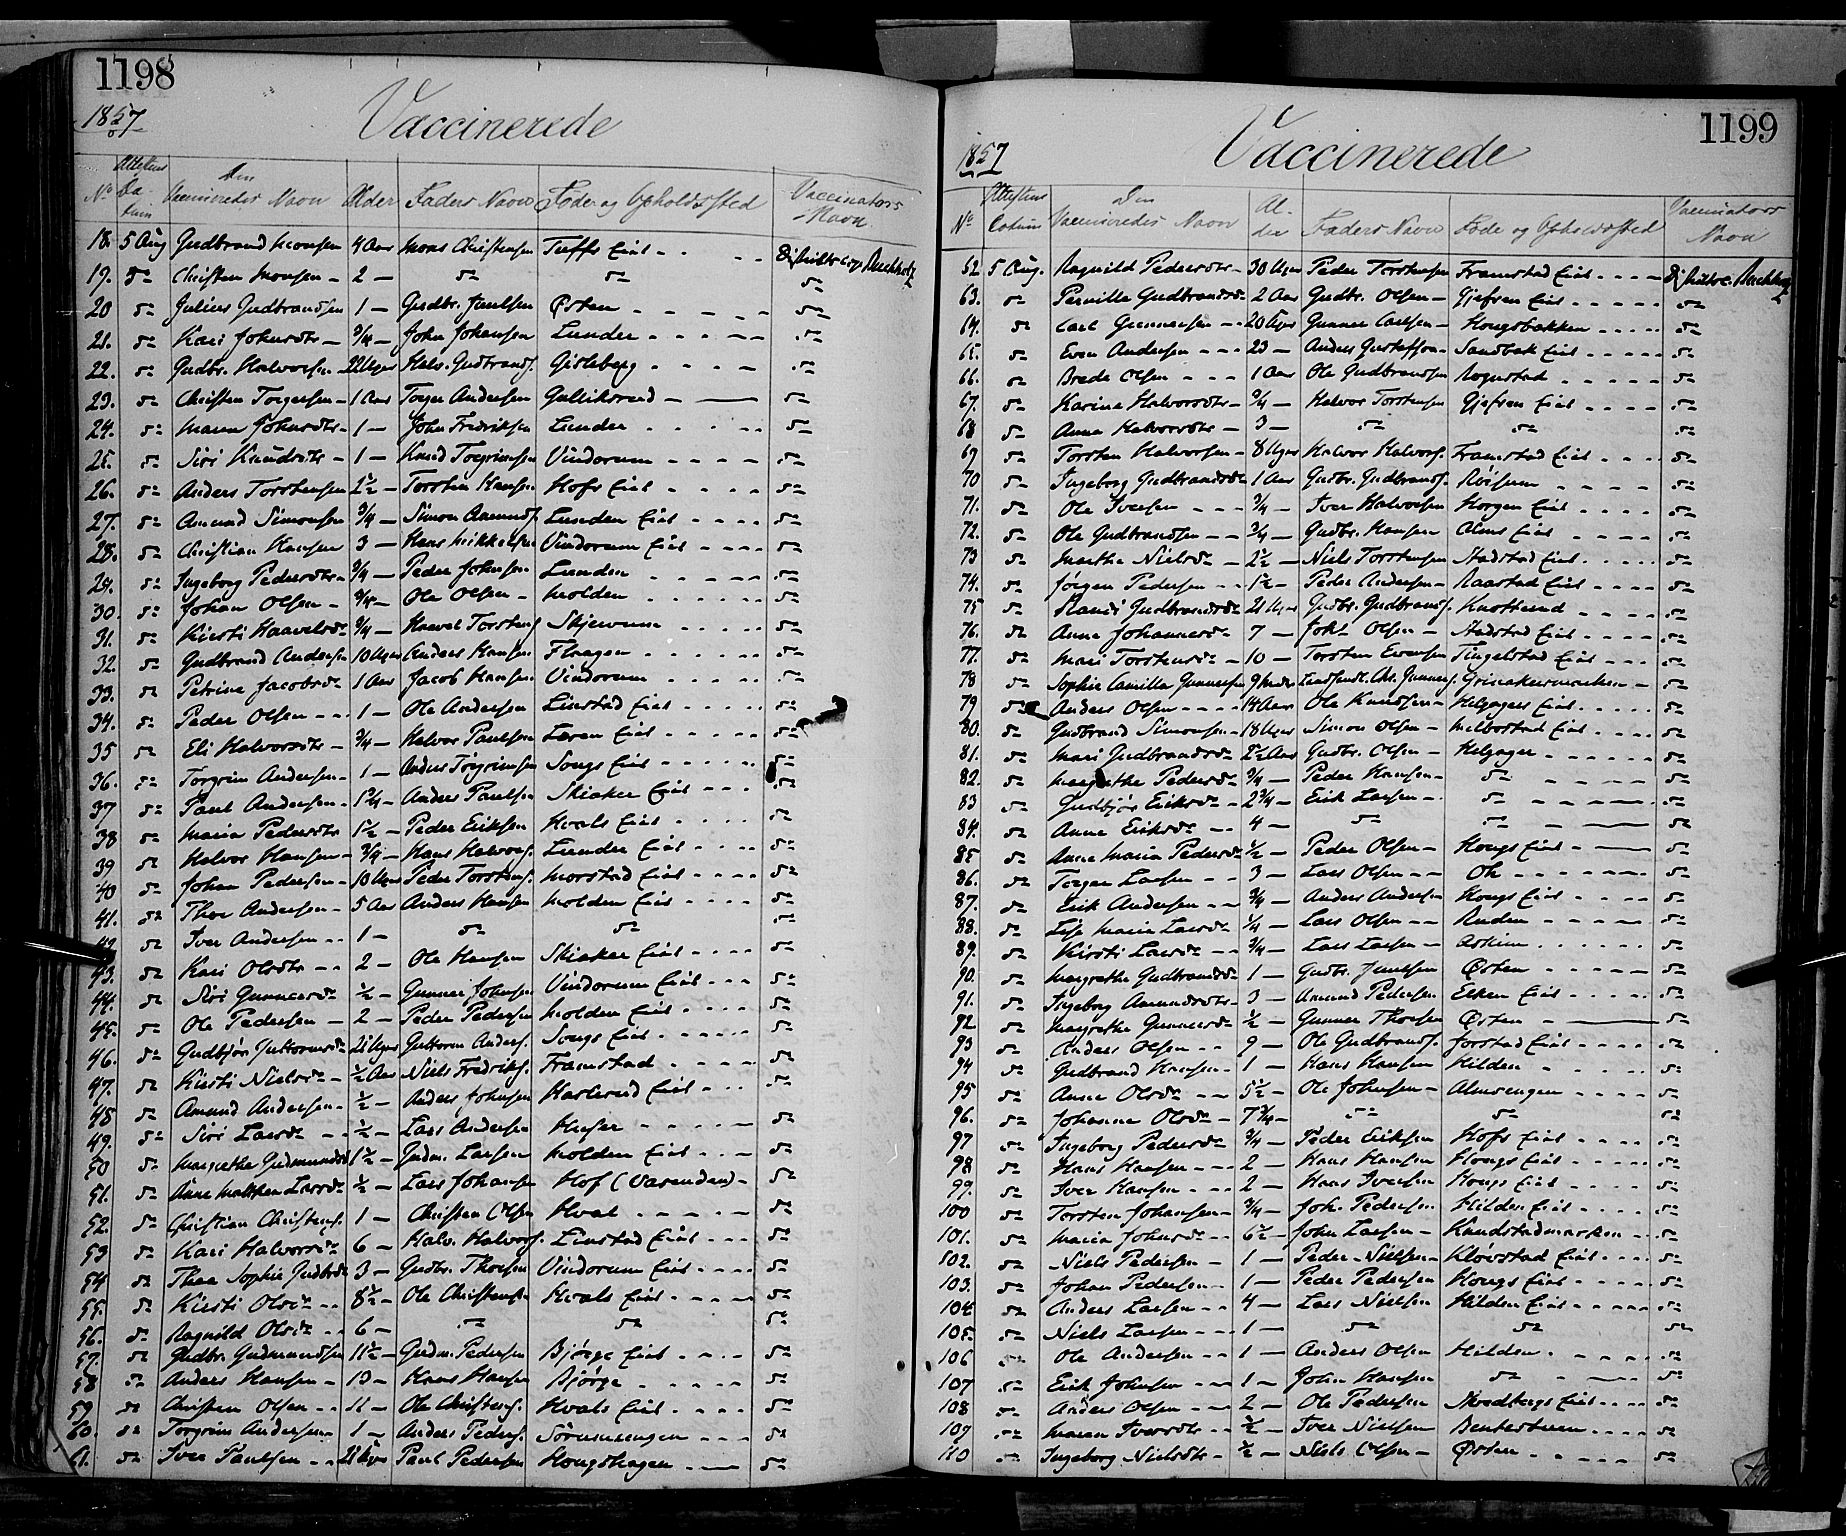 1198
1857
Vaccinerede
No Attestens Datum Den Vaccineredes Navn Alder Faders Navn Føde og Opholdssted Vaccinators Navn
18. 5 Aug Gudbrand Monsen 4 Aar Mons Christensen Tuffs Eiet
19. do Christen Monsen 2 — do do do
20 do Julius Gudbrandsen 1 — Gudbr. Paulsen Østen do
21. do Kari Johnsdtr — 3/4 — John Johansen Lunder do
22. do Gudbr. Halvorsen 22 Uger Halv. Gudbrands. Gisleberg do
23. do Christen Torgersen — 1 Aar Torger Andersen Gulliksrud do
24. do Maren Johnsdtr — 1 — John Fredriksen Lunder do
25. do Siri Knudsdtr — 1 — Knud Torgrimsen Vindorum do
26. do Anders Torstensen 2½ — Torsten Hansen Hofs Eiet do
27. do Amund Simonsen 3/4 — Simon Amunds. Lunden Eiet do
28. do Christian Hansen 3 — Hans Mikkelsen Vindorum Eiet do
29. do Ingeborg Pedersdtr 3/4 — Peder Johnsen Lunden do
30. do Johan Olsen — 3/4 — Ole Olsen — Molden do
31. do Kirsti Haavelsdr 3/4 — Haavel Torstens. Skjervum do
32. do Gudbrand Andersen 10 Uger Anders Hansen Flaagen do
33. do Petrine Jacobsdr 1 Aar Jacob Hansen Vindorum do
34. do Peder Olsen 1 — Ole Andersen Linstad Eiet
35 do Eli Halvorsdtr 3/4 — Halvor Paulsen Løren Eiet do
36. do Torgrim Andersen 1 — Anders Torgrimsen Songs Eiet do
37 do Paul Andersen 1¾ — Anders Paulsen Skiaker Eiet do
38 do Maria Pedersdtr 1½ — Peder Eriksen Hvals Eiet do
39 do Halvor Hansen 3/4 — Hans Halvors. Lunder Eiet do
40 do Johan Pedersen 10 Uger Peder Torstens. Morstad Eiet do
41. do Thor Andersen 5 Aar Anders Hansen Molden Eiet do
42. do Iver Andersen 1 — do do do
43. do Kari Olsdtr 2 — Ole Hansen Skiaker Eiet do
44. do Siri Gunnersdr ½ — Gunner Johnsen Vindorum Eiet do
45. do Ole Pedersen 2 — Peder Pedersen Molden Eiet do
46. do Gudbjør Guttormsdr 21 Uger Guttorm Anders. Songs Eiet do
47. do Kirsti Nielsdr ½ Aar Niels Fredriks. Framstad do
48 do Amund Andersen ½ — Anders Johnsen Haslerud Eiet do
49. do Siri Larsdr ½ — Lars Andersen Huser do
50 do Margrethe Gudmundsd 1½ — Gudm. Larsen Molden Eiet do
51. do Anne Mathea Larsdr ½ — Lars Johansen Hof (Vasenden) do
52. do Christian Christens. 1 — Christen Olsen Hval do
53 do Kari Halvorsdr 6 — Halv. Halvors. Linstad Eiet do
54 do Thea Sophie Gudbrdr 3 — Gudbr. Thorsen Vindorum Eiet do
55. do Kirsti Olsdr 8½ — Ole Christensen Hvals Eiet do
56. do Ragnild Olsdr 6 — do do do
57. do Gudbr. Gudmundsen 11½ — Gudm. Pedersen Bjørge Eiet do
58 do Anders Hansen 13 — Hans Hansen Bjørge do
59 do Christen Olsen 11 — Ole Christens. Hvals Eiet do
60. do Torgrim Andersen 1 — Anders Peders. Sørumsengen do
61. do Iver Paulsen 21 Uger Paul Pedersen Hongshagen do
1199
1857
Vaccinerede
No Attestens Datum Den Vaccineredes Navn Alder Faders Navn Føde og Opholdssted Vaccinators Navn
62 5 Aug. Ragnild Pedersdtr 30 Uger Peder Torstensen Framstad Eiet
63. do Pernille Gudbrandsdr 2 Aar Gudbr. Olsen Gjefsen Eiet do
64. do Carl Gunnersen 20 Uger Gunner Carlsen Hongsbakken do
65. do Even Andersen 23 — Anders Gustafson Sandbæk Eiet do
66. do Brede Olsen 1 Aar Ole Gudbrandsen Rognstad do
67. do Karine Halvorsdtr 3/4 — Halvor Torstensen Gjefsen Eiet do
68 do Anne Halvorsdtr 3 — do do do
69 do Torsten Halvorsen 8 Uger Halvor Halvors. Framstad Eiet do
70 do Ingeborg Gudbrandsdr 1 Aar Gudbr. Gudbrands. Røisum do
71. do Ole Iversen 3/4 — Iver Halvorsen Horgen Eiet do
72. do Ole Gudbrandsen 3/4 — Gudbr. Hansen Alms Eiet do
73 do Marthe Nielsdr 2½ — Niels Torstensen Stadstad Eiet do
74. do Jørgen Pedersen 1½ — Peder Andersen Raastad Eiet do
75 do Randi Gudbrandsdr 21 Uger Gudbr. Gudbrands. Knotterud do
76. do Anne Johannesdr 7 — Johs Olsen Stadstad Eiet do
77. do Mari Torstensdr 10 — Torsten Evensen Tingelstad Eiet do
78 do Sophie Camilla Gunnersen Grinakermarken do
79 do Anders Olsen 14 Aar Ole Knudsen Helgagers Eiet do
80. do Gudbrand Simonsen 18 Uger Simon Olsen Melbostad Eiet do
81. do Mari Gudbrandsdr 2½ Aar Gudbr. Olsen Helgager do
82. do Margrethe Pedersdr 3/4 — Peder Hansen do do
83 do Gudbjør Eriksdr 2¾ — Erik Larsen do do
84. do Anne Eriksdr 4 — do do do
85 do Anne Maria Pedersdr ½ — Peder Olsen Hongs Eiet do
86. do Torger Larsen 3 — Lars Olsen Oh do
87. do Erik Andersen 3/4 — Anders Andersen Hongs Eiet do
88. do Lise Maria Larsdr ¼ — Lars Olsen Ruden do
89. do Kirsti Larsdr 3/4 — Lars Larsen Askim do
90. do Margrethe Gudbrandsdr 1 — Gudbr. Paulsen Østen do
91. do Ingeborg Amundsdtr 3 — Amund Pedersen Elken Eiet do
92 do Margrethe Gunnersdr ½ — Gunner Thorsen Østen do
93 do Anders Olsen 9 — Ole Gudbrands. Jorstad Eiet do
94 do Gudbrand Hansen 1 — Hans Hansen Hilden do
95 do Anne Olsdr 5½ — Ole Johnsen Almsengen do
96. do Johanne Olsdr 7¾ — do do do
97 do Ingeborg Pedersdr 3/4 — Peder Eriksen Hofs Eiet do
98 do Hans Hansen 2 — Hans Hansen Hongs Eiet do
99. do Iver Hansen 2 — Hans Iversen Hongs Eiet do
100 do Torsten Johansen 3/4 — Joh. Pedersen Hilden Eiet do
101. do Maria Johnsdr 6½ — John Larsen Kandstadmarken do
102. do Niels Pedersen 1 — Peder Nielsen Klovstad Eiet do
103. do Johan Pedersen 1 — Peder Pedersen Hongs Eiet do
104 do Anders Larsen 4 — Lars Nielsen Hilden Eiet do
105. do Niels Larsen 1 — do do do
106 do Ole Andersen 1 — Anders Olsen Hilden do
107 do Erik Johnsen 1 — John Hansen do do
108 do Anders Olsen 2 — Ole Pedersen Skredbergs Eiet do
109 do Maren Iversdtr ½ — Iver Nielsen do
110 do Ingeborg Nielsdtr ½ — Niels Olsen Østen do